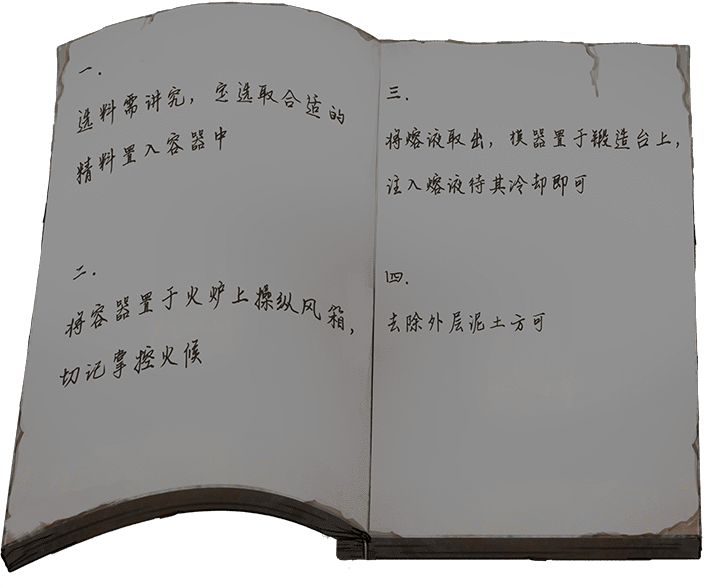 一.
选料需讲究，定选取合适的
精料置入容器中
二.
将容器置于火炉上操纵风箱，
切记掌控火候
三.
将熔液取出，模器置于锻造台上，
注入熔液待其冷却即可
四.
去除外层泥土方可